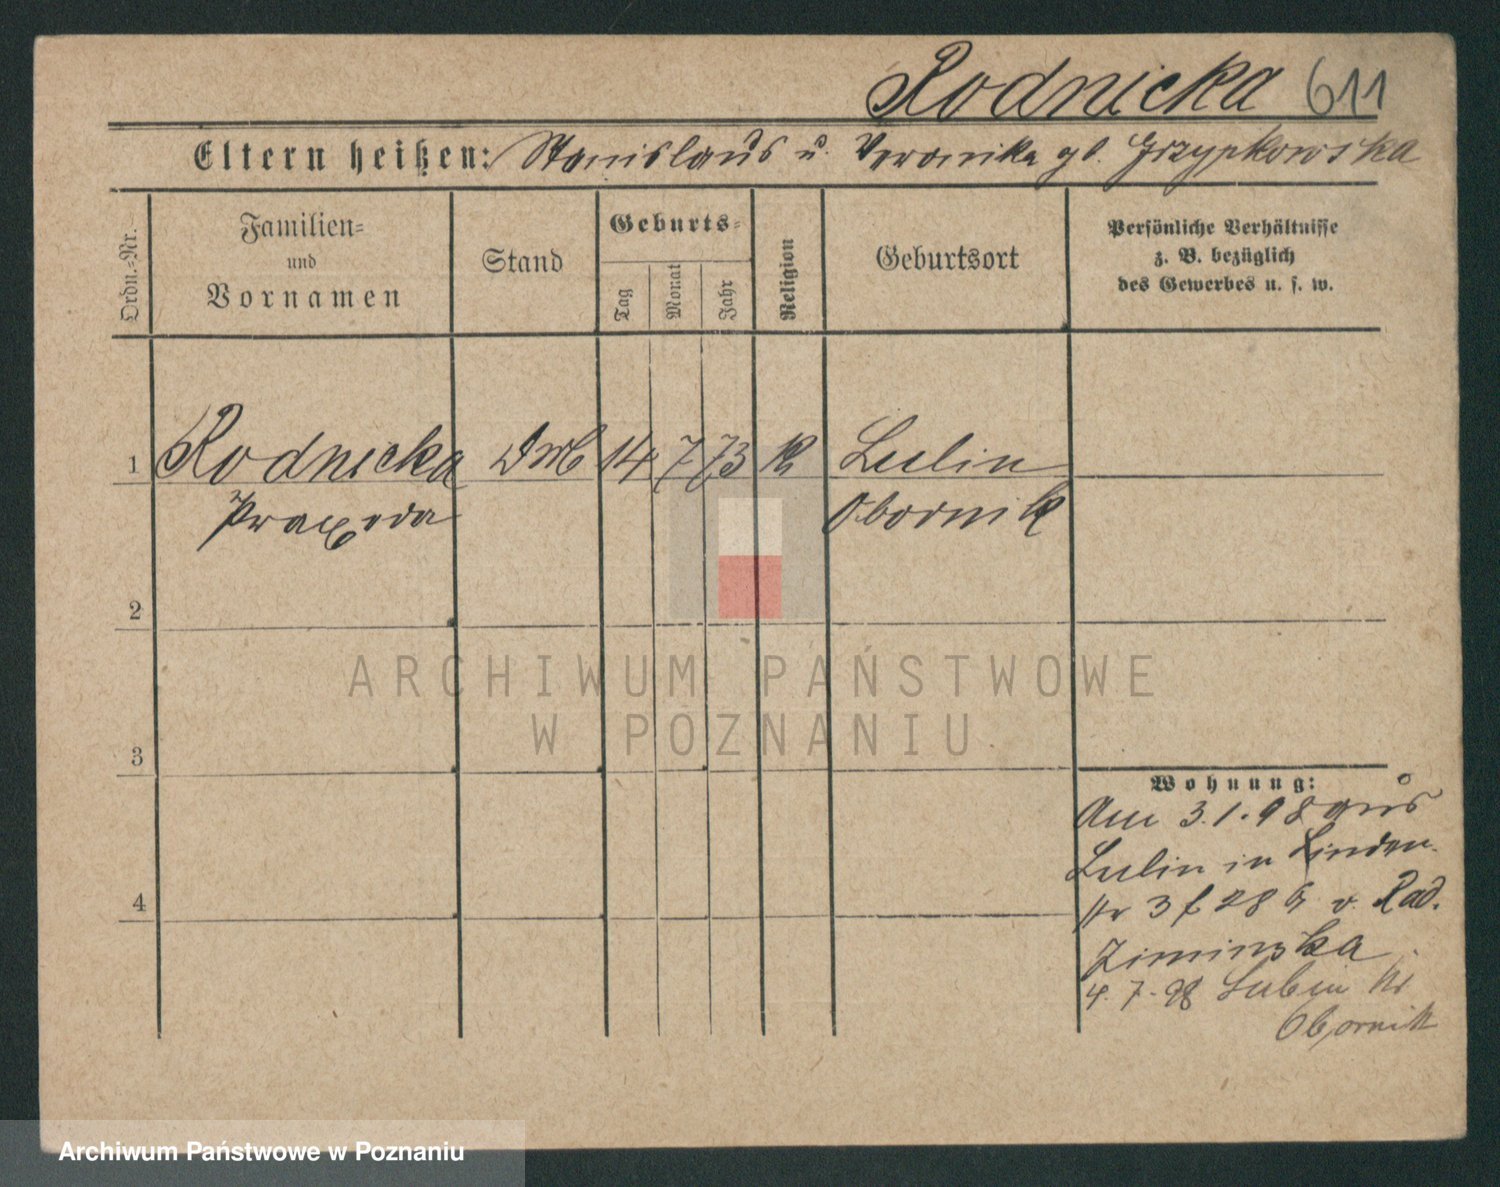 Rodnicka 611
Eltern heißen: Stanislaus u. Veronika gb. Grzypkowska
Ordn.-Nr.
Familien- und Vornamen
Stand
Geburts-
Tag
Monat
Jahr
Religion
Geburtsort
Persönliche Verhältnisse
z. B. bezüglich
des Gewerbes u. s. w.
1 Rodnicka 14 7 73 k Lulin
Praxeda Obornik
2
3
4
Wohnung:
Am 3.1.98 aus
Lulin in Linden-
str 3 b. v. Rad.
Ziminska
4.7.98 Lubin Kr
Obornik
ARCHIWUM PAŃSTWOWE
W POZNANIU
Archiwum Państwowe w Poznaniu